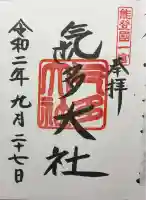 能登國一宮
奉拝
氣多大社
令和二年九月二十七日